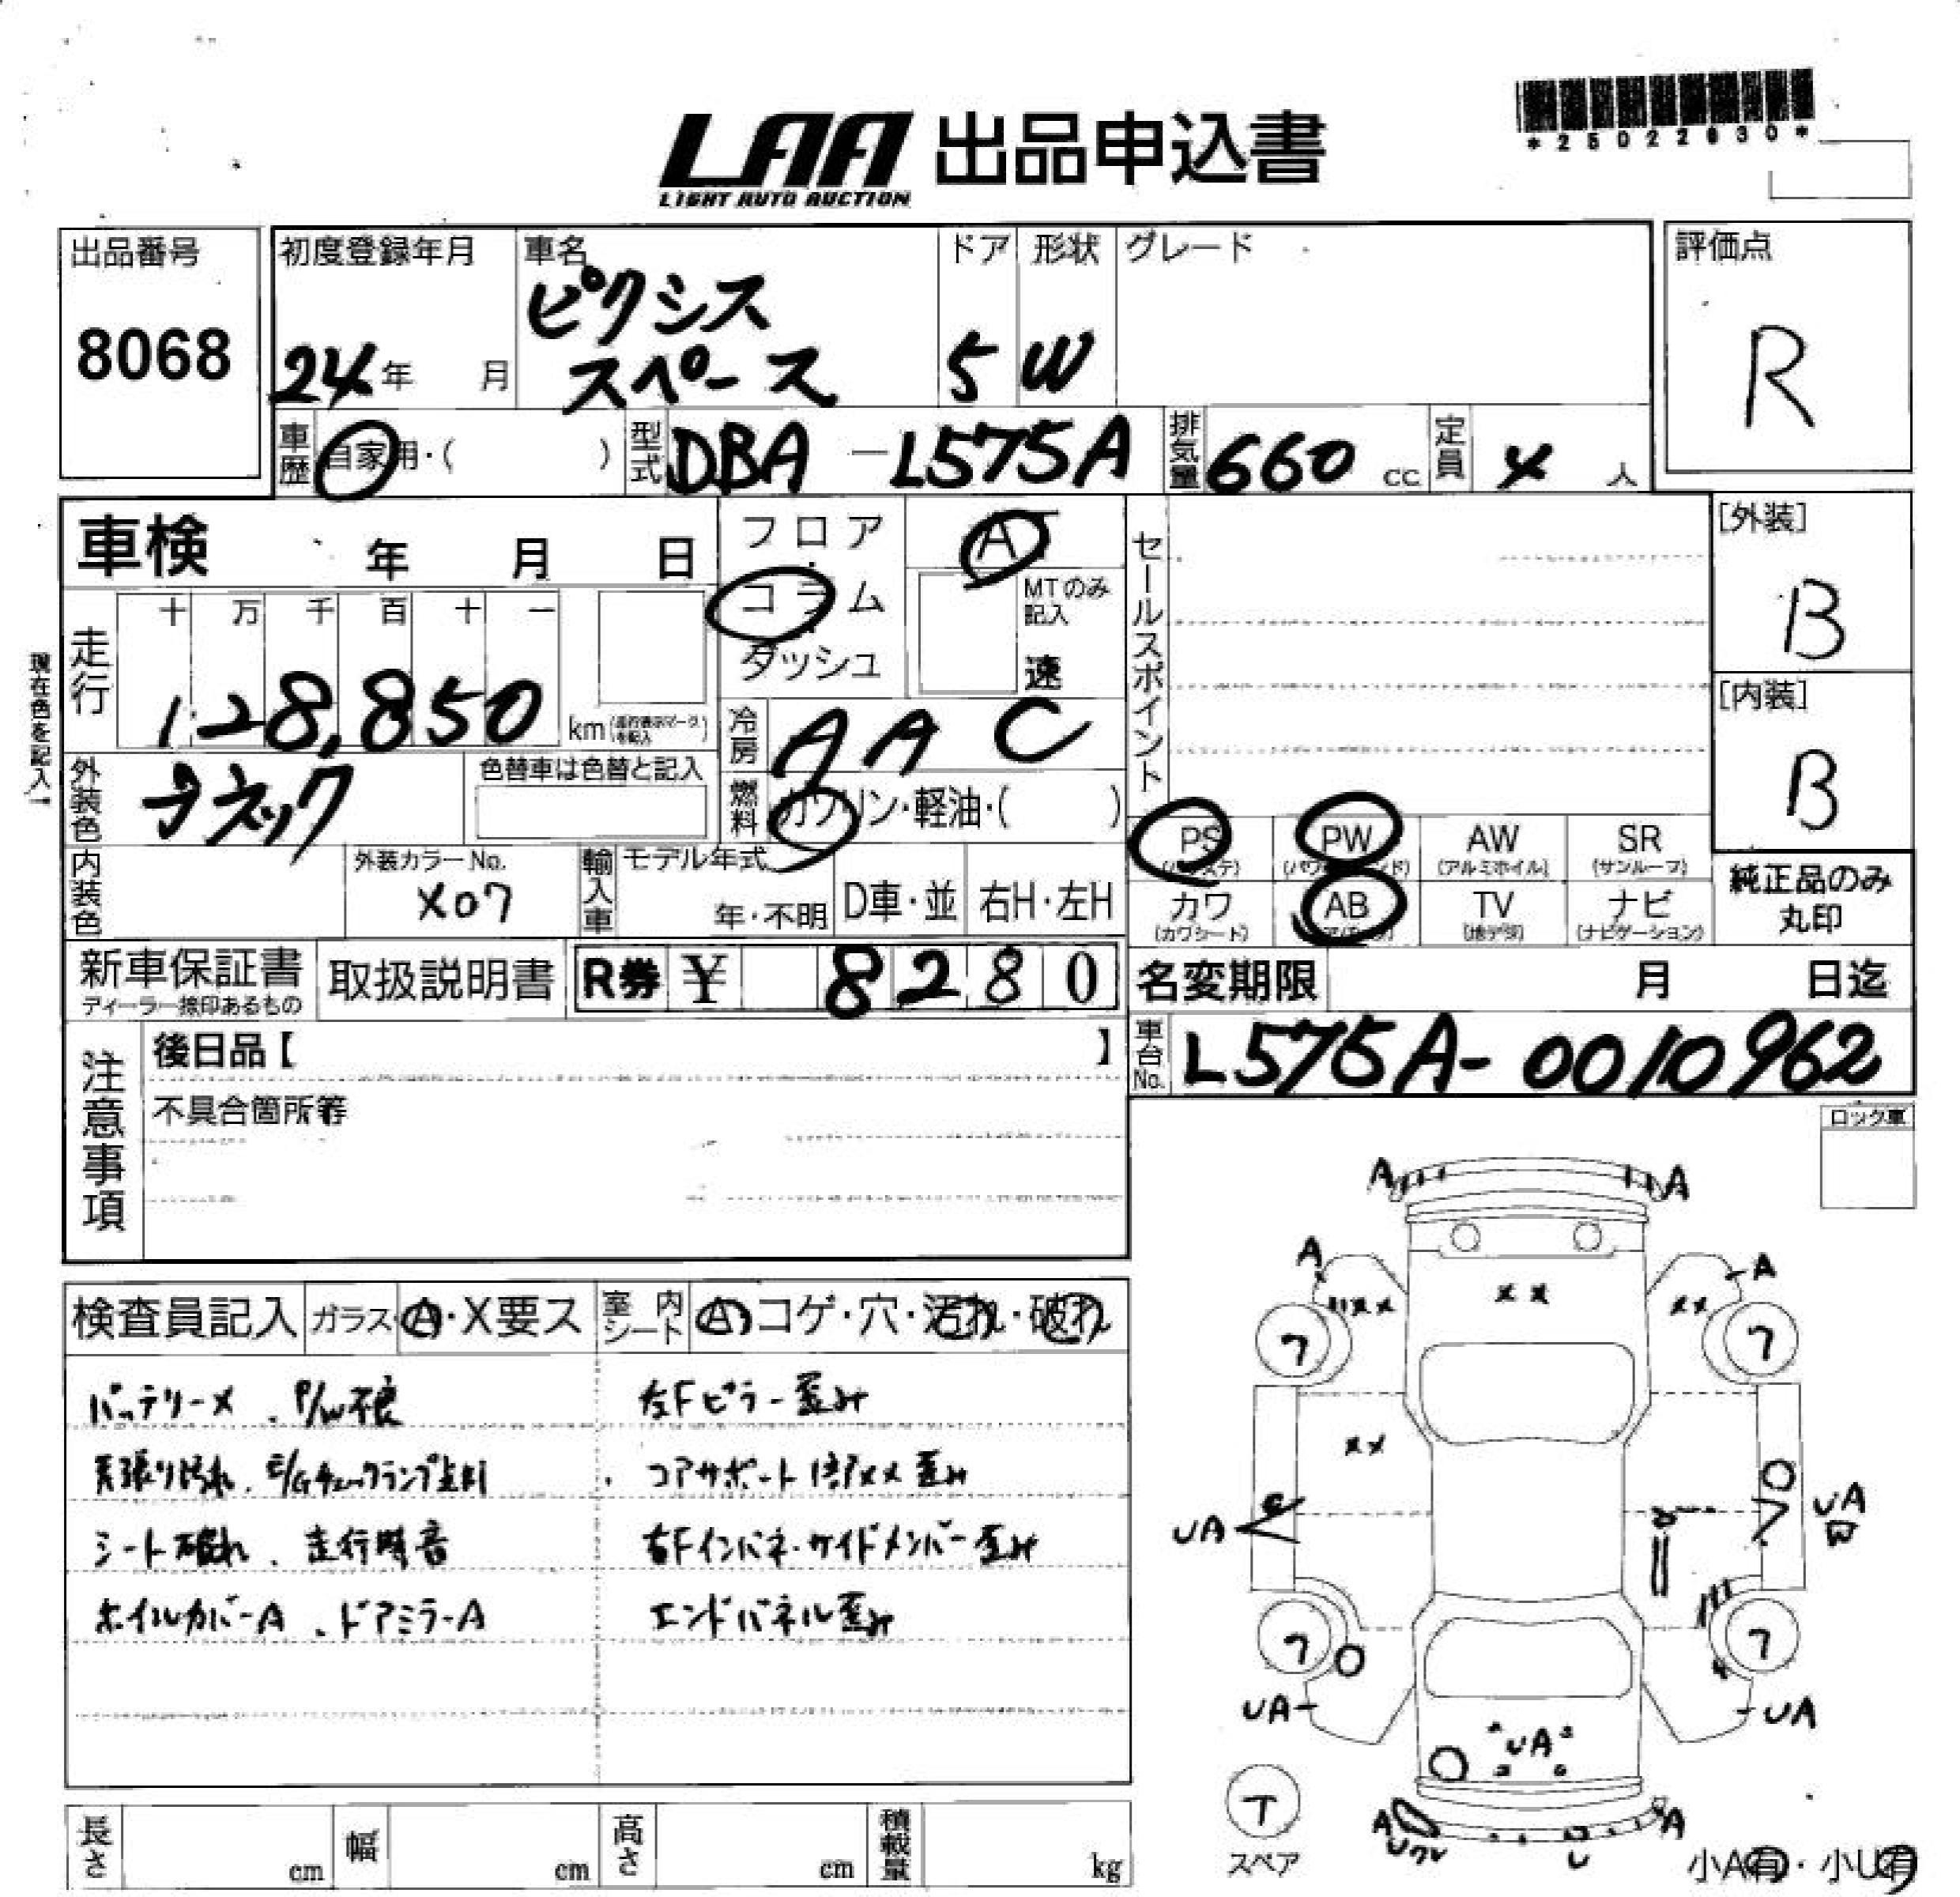 *25022830*
LAA 出品申込書
LIGHT AUTO AUCTION
出品番号
8068
初度登録年月
24年 月
車名
ピクシス
スペース
ドア
5
形状
W
グレード
評価点
R
車歴
自家用・( )
型式
DBA -L575A
排気量
660 cc
定員
4 人
車検 年 月 日
フロア
コラム
ダッシュ
AT
MTのみ
記入
速
セールスポイント
[外装]
B
[内装]
B
現在色を記入
走行
十 万 千 百 十 一
128,850 km
冷房
AAC
外装色
ブラック
色替車は色替と記入
燃料
ガソリン・軽油・( )
PS
PW
AW
(アルミホイル)
SR
(サンルーフ)
内装色
外装カラーNo.
X07
輸入車
モデル年式
年・不明
D車・並
右H・左H
カワ
(カワシート)
AB
TV
(地デジ)
ナビ
(ナビゲーション)
純正品のみ
丸印
新車保証書
ディーラー捺印あるもの
取扱説明書
R券 ¥ 8280
名変期限 月 日迄
車台No.
L575A-0010962
注意事項
後日品【 】
不具合箇所等
ロック車
検査員記入
ガラス A・X要ス
室内シート A コゲ・穴・汚れ・破れ
バッテリーX、P/W不良
左Fピラー歪み
天張り汚れ、E/Gチェックランプ点灯
コアサポート XX 歪み
シート破れ、走行時音
右Fインパネ・サイドメンバー歪み
ホイルカバーA、ドアミラーA
エンドパネル歪み
A A
A A
XX XX XX
7 7
XX
UA UA
7 7
UA UA
UA
T
スペア
A A
U
小A有・小U有
長さ cm
幅 cm
高さ cm
積載量 kg